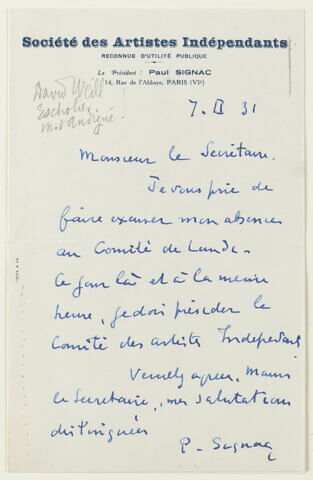 Société des Artistes Indépendants
RECONNUE D'UTILITÉ PUBLIQUE
Le Président : Paul SIGNAC
14, Rue de l'Abbaye, PARIS (VIe)
David Weill
Escholier
m. d'Andigné.
7. II 31
Monsieur le Secrétaire.
Je vous prie de
faire excuser mon absence
au Comité de Lundi.
Ce jour là et à la meme
heure, je dois présider le
Comité des artistes Indépendants
Veuillez agréer, Monsr
le Secretaire, mes salutations
distinguées
P. Signac